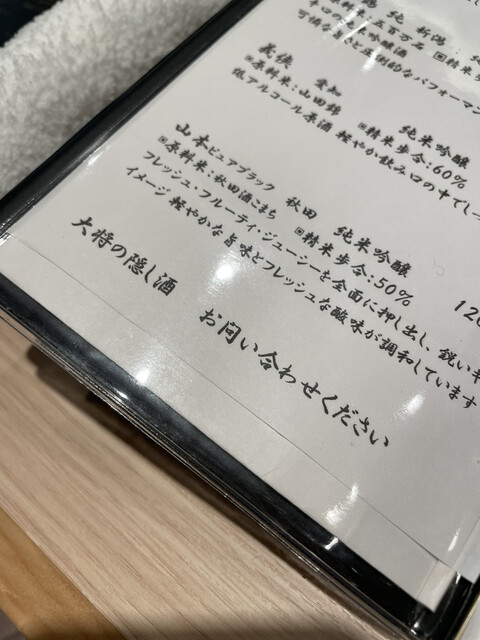 純 新潟
五百万石 ▣精米歩
可憐
的なパフォーマン
義侠 愛知 純米吟醸
▣原料米:山田錦 ▣精米歩合:60%
低アルコール原酒 軽やか飲み口の中でしっ
山本ピュアブラック 秋田 純米吟醸
▣原料米:秋田酒こまち ▣精米歩合:50% 120
フレッシュ・フルーティ・ジューシーを全面に押し出し、鋭いキ
イメージ 軽やかな旨味とフレッシュな酸味が調和しています
大将の隠し酒 お問い合わせください